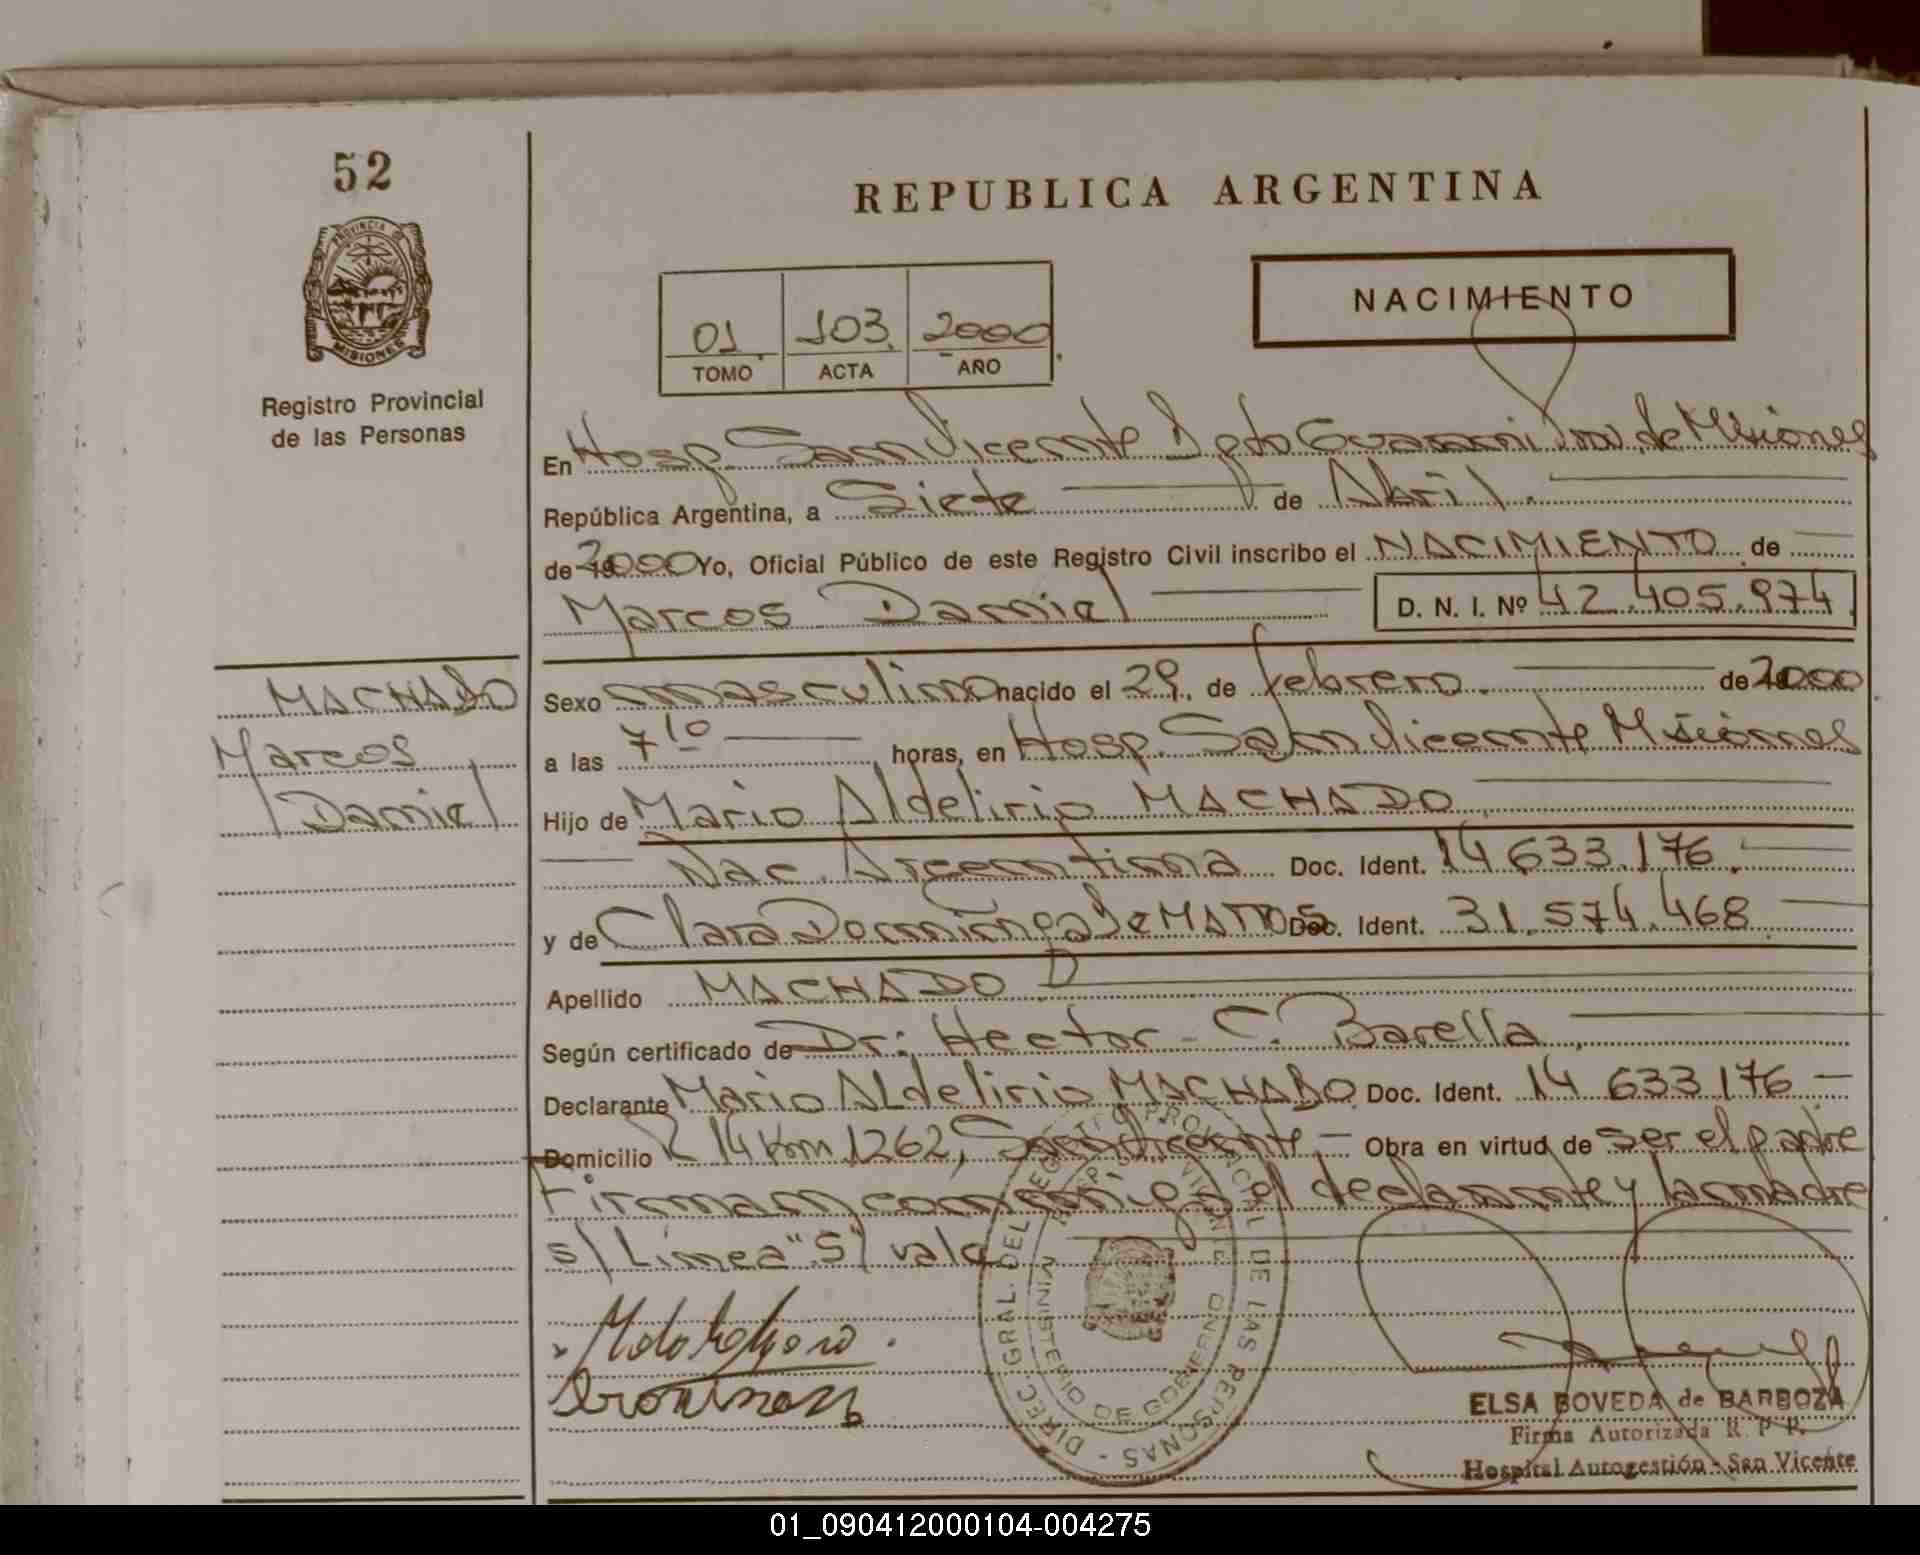 52
PROVINCIA DE
MISIONES
Registro Provincial
de las Personas
REPUBLICA ARGENTINA
NACIMIENTO
01 103 2000
TOMO ACTA AÑO
En Hosp. San Vicente Dpto Guarani Prov. de Misiones
República Argentina, a Siete de Abril.
de 2000 Yo, Oficial Público de este Registro Civil inscribo el NACIMIENTO de
Marcos Daniel D. N. I. Nº 42.405.974
MACHADO
Marcos
Daniel
Sexo masculino nacido el 29, de febrero. de 2000
a las 7 10 horas, en Hosp. San Vicente Misiones
Hijo de Mario Aldelirio MACHADO
Nac. Argentina Doc. Ident. 14 633.176.
y de Clara Dominga De MATTOS Doc. Ident. 31.574.468
Apellido MACHADO
Según certificado de Dr: Hector - C. Barella
Declarante Mario ALdelirio MACHADO Doc. Ident. 14 633 176
Domicilio R 14 Km 1262, San Vicente - Obra en virtud de ser el padre
Firman conmigo el declarante y la madre
s/ Linea "S" vale
DIREC. GRAL. DEL REGISTRO PROVINCIAL DE LAS PERSONAS -
MINISTERIO DE GOBIERNO
ELSA BOVEDA de BARBOZA
Firma Autorizada R. P. P.
Hospital Autogestión - San Vicente
01_090412000104-004275